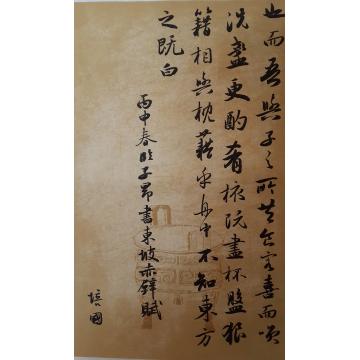 也而吾與子之所共食客喜而咲
洗盞更酌肴核既盡杯盤狼
籍相與枕藉乎舟中不知東方
之既白
丙申春臨子昂書東坡赤壁賦
培國